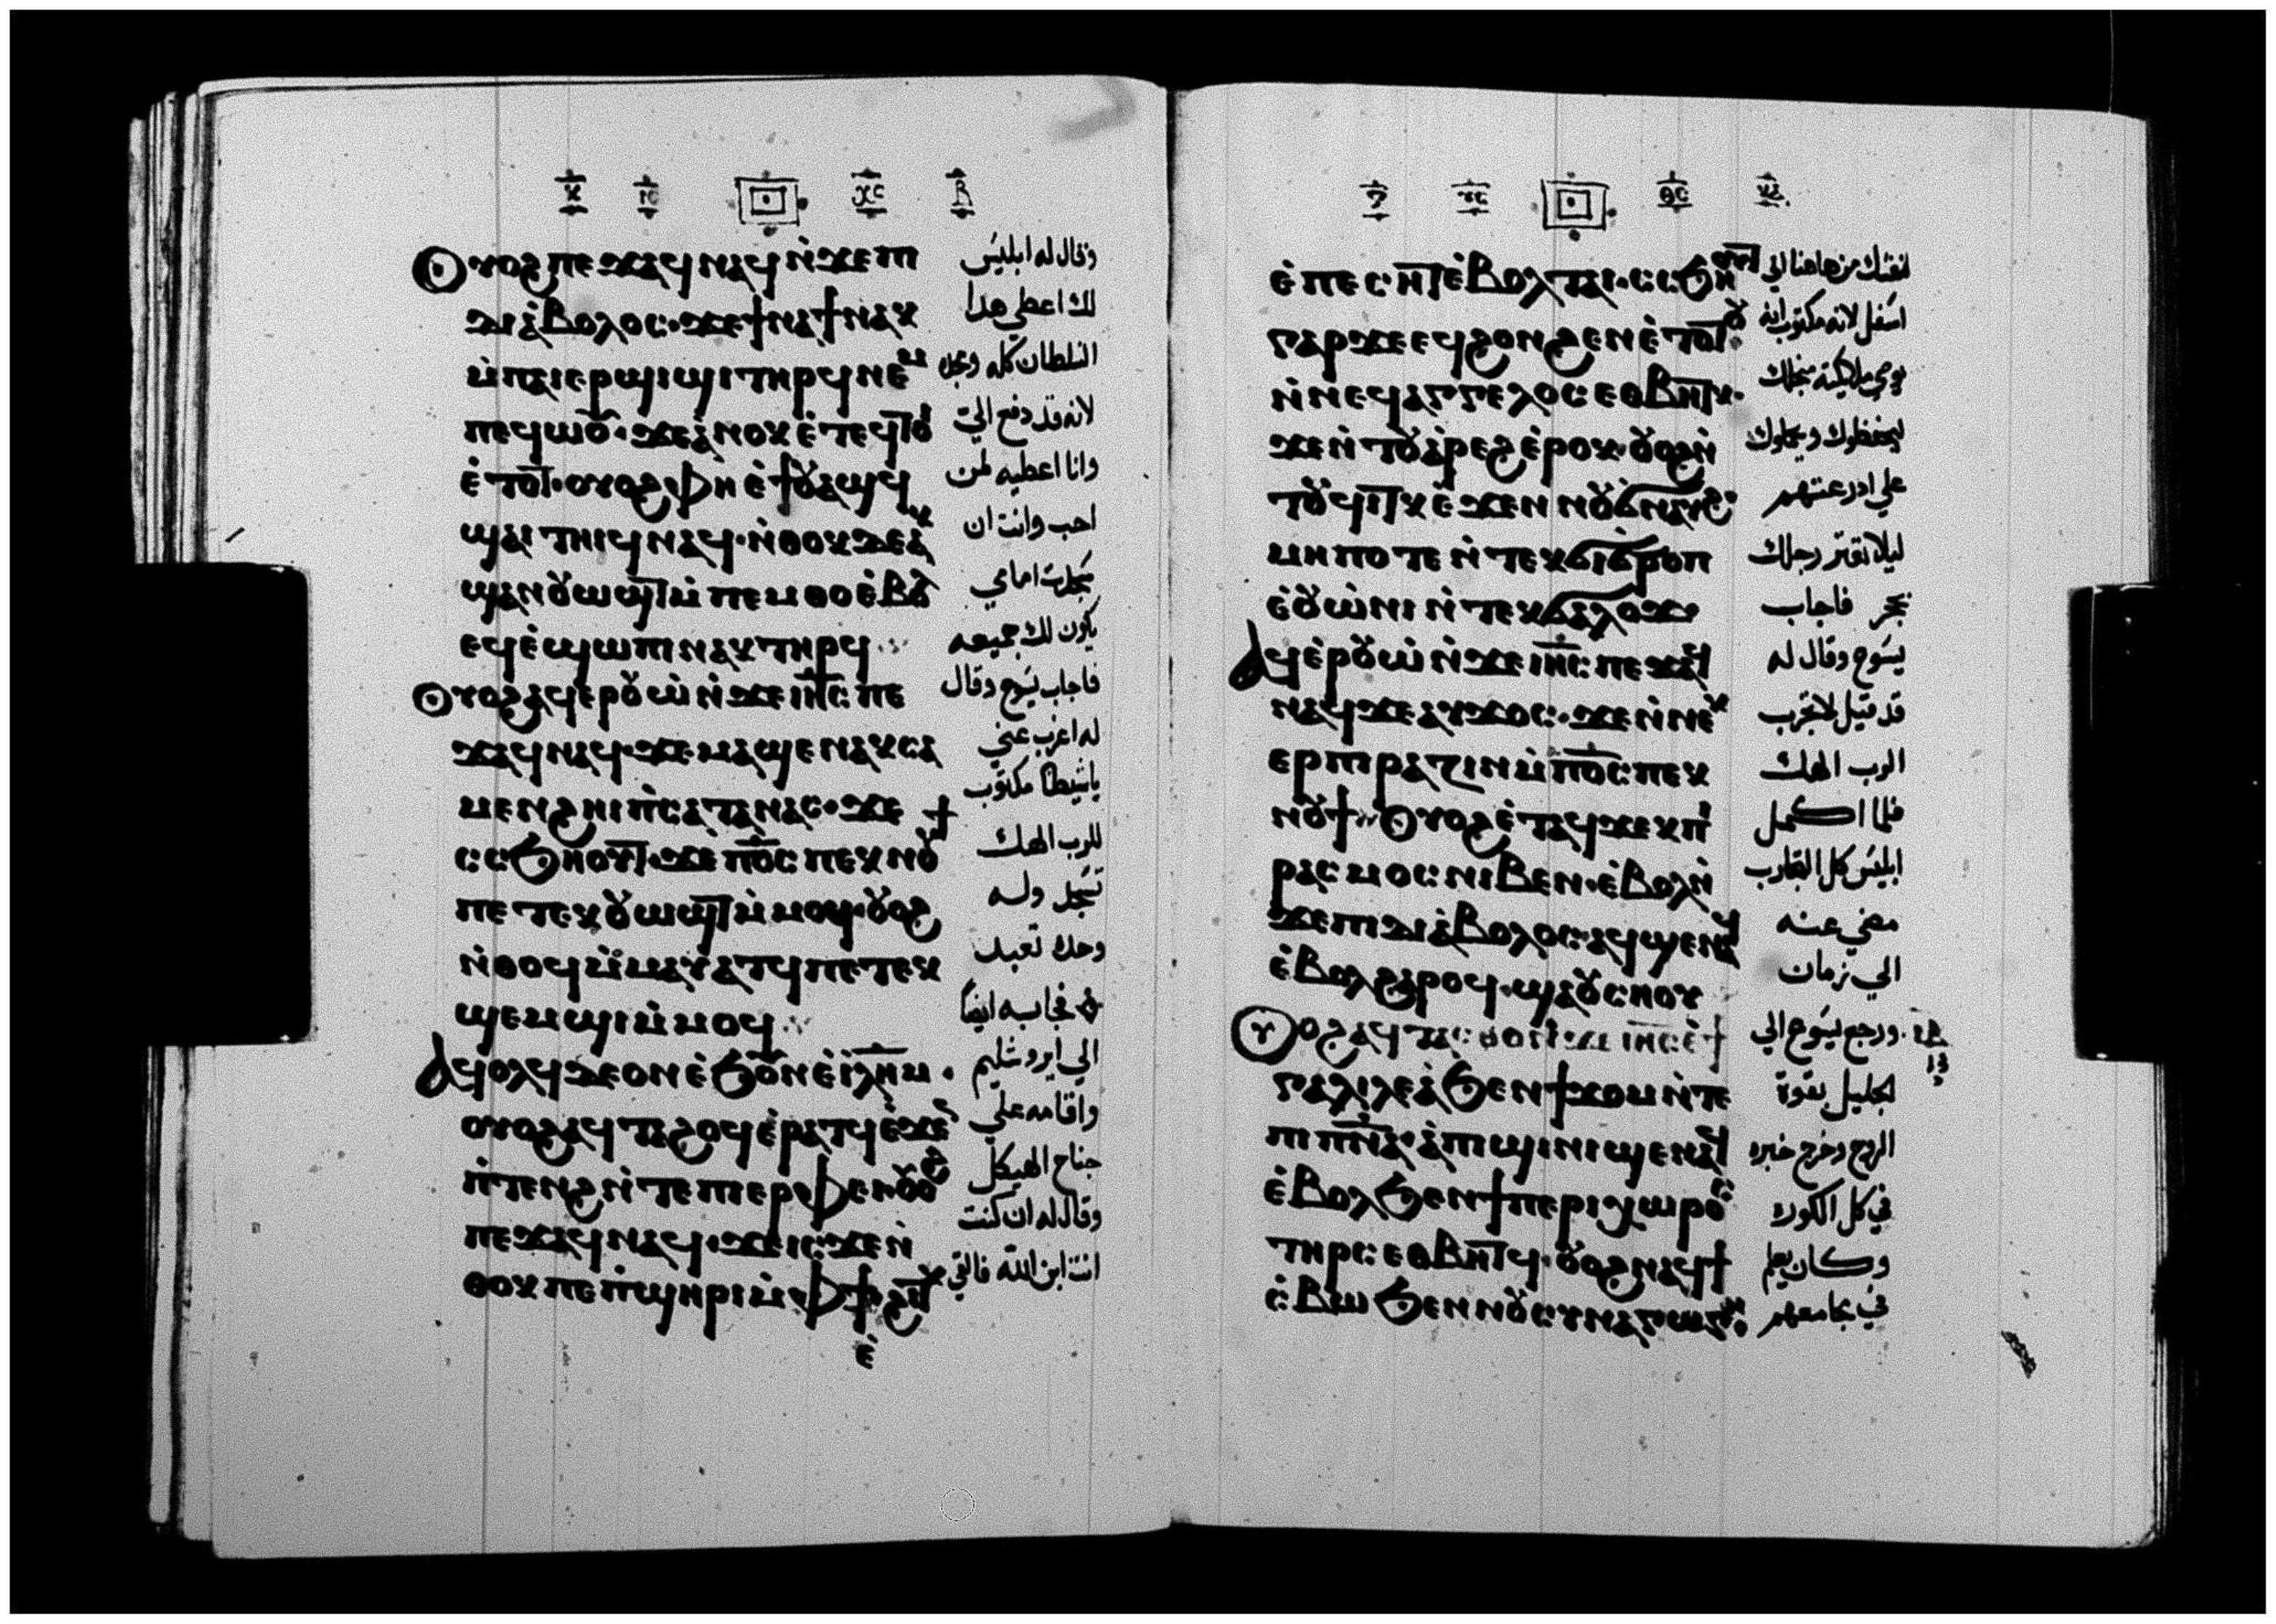 ⲟⲩⲟϩ ⲡⲉϫⲁϥ ⲛⲁϥ ⲛ̀ϫⲉ ⲡⲓ
ⲇⲓⲁ̀ⲃⲟⲗⲟⲥ· ϫⲉ ϯⲛⲁϯ ⲛⲁⲕ
ⲙ̀ⲡⲁⲓⲉⲣϣⲓϣⲓ ⲧⲏⲣϥ ⲛⲉⲙ
ⲡⲉϥⲱⲟⲩ· ϫⲉ ⲁ̀ⲛⲟⲕ ⲉ̀ⲧⲉϥⲧⲟⲓ
ⲉ̀ⲧⲟⲧ· ⲟⲩⲟϩ ⲫⲏ ⲉ̀ϯⲟⲩⲁϣϥ
ϣⲁⲓⲧⲏⲓϥ ⲛⲁϥ· ⲛ̀ⲑⲟⲕ ⲇⲉ ⲁⲕ
ϣⲁⲛⲟⲩⲱϣⲧ ⲙ̀ⲡⲉⲙⲑⲟ ⲉ̀ⲃⲟⲗ
ⲉϥⲉ̀ϣⲱⲡⲓ ⲛⲁⲕ ⲧⲏⲣϥ
ⲟⲩⲟϩ ⲁϥⲉⲣⲟⲩⲱ̀ ⲛ̀ϫⲉ ⲓⲏⲥ ⲡⲉ
ϫⲁϥ ⲛⲁϥ· ϫⲉ ⲙⲁϣⲉⲛⲁⲕ ⲥⲁ
ⲙⲉⲛϩⲏⲓ ⲡ̀ⲥⲁⲧⲁⲛⲁⲥ· ϫⲉ
ⲥⲥϧⲏⲟⲩⲧ· ϫⲉ ⲡⲟⲥ ⲡⲉⲕⲛⲟⲩϯ
ⲡⲉⲧⲉⲕⲟⲩⲱϣⲧ ⲙ̀ⲙⲟϥ· ⲟⲩⲟϩ
ⲛ̀ⲑⲟϥ ⲙ̀ⲙⲁⲩⲁⲧϥ ⲡⲉⲧⲉⲕ
ϣⲉⲙϣⲓ ⲙ̀ⲙⲟϥ
ⲁϥⲟⲗϥ ⲇⲉ ⲟⲛ ⲉ̀ϧⲟⲩⲛ ⲉ̀ⲓⲗⲏⲙ·
ⲟⲩⲟϩ ⲁϥⲧⲁϩⲟϥ ⲉ̀ⲣⲁⲧϥ ⲉ̀ϫⲉⲛ
ⲡ̀ⲧⲉⲛϩ ⲛ̀ⲧⲉ ⲡⲓⲉⲣⲫⲉⲓ ⲟⲩⲟϩ
ⲡⲉϫⲁϥ ⲛⲁϥ· ϫⲉ ⲓⲥϫⲉ ⲛ̀
ⲑⲟⲕ ⲡⲉ ⲡ̀ϣⲏⲣⲓ ⲙ̀ⲫϯ ϩⲓⲧⲕ
ⲉ̀
وقال له ابليس
لك اعطي هذا
السلطان كله ومجده
لانه قد دفع الي
وانا اعطيه لمن
احب وانت ان
سجدت امامي
يكون لك جميعه
فاجاب يسوع وقال
له اغرب عني
ياشيطان مكتوب
للرب الهك
تسجد وله
وحده تعبد
فجا به ايضا
الي ايروشليم
واقامه علي
جناح الهيكل
وقال له ان كنت
انت ابن الله فالقي
ⲉ̀ⲡⲉⲥⲏⲧ ⲉ̀ⲃⲟⲗ ⲧⲁⲓ· ⲥⲥϧⲏⲟⲩⲧ
ⲅⲁⲣ ϫⲉ ⲉϥϩⲟⲛϩⲉⲛ ⲉ̀ⲧⲟⲧⲟⲩ
ⲛ̀ⲛⲉϥⲁⲅⲅⲉⲗⲟⲥ ⲉⲑⲃⲏⲧⲕ·
ϫⲉ ⲛ̀ⲧⲟⲩⲁ̀ⲣⲉϩ ⲉ̀ⲣⲟⲕ· ⲟⲩⲟϩ ⲛ̀
ⲧⲟⲩϥⲓⲧⲕ ⲉ̀ϫⲉⲛ ⲛⲟⲩϭⲛⲁⲩϩ
ⲙⲏⲡⲟⲧⲉ ⲛ̀ⲧⲉⲕϭⲓϭⲣⲟⲡ
ⲉ̀ⲟⲩⲱ̀ⲛⲓ ⲛ̀ⲧⲉⲕϭⲁⲗⲟϫ
ⲁϥⲉ̀ⲣⲟⲩⲱ̀ ⲛ̀ϫⲉ ⲓⲏⲥ ⲡⲉϫⲁϥ
ⲛⲁϥ ϫⲉ ⲁⲩϫⲟⲥ· ϫⲉ ⲛ̀ⲛⲉⲕ
ⲉⲣⲡⲓⲣⲁⲍⲓⲛ ⲙ̀ⲡⲟⲥ ⲡⲉⲕ
ⲛⲟⲩϯ ⲟⲩⲟϩ ⲉ̀ⲧⲁϥϫⲉⲕ ⲡⲓ
ⲣⲁⲥⲙⲟⲥ ⲛⲓⲃⲉⲛ· ⲉ̀ⲃⲟⲗ ⲛ̀
ϫⲉ ⲡⲓⲇⲓⲁ̀ⲃⲟⲗⲟⲥ· ⲁϥϣⲉⲛⲁϥ
ⲉ̀ⲃⲟⲗ ϩⲁⲣⲟϥ· ϣⲁ ⲟⲩⲥⲏⲟⲩ
ⲟⲩⲟϩ ⲁϥⲧⲁⲥⲑⲟϥ ⲛ̀ϫⲉ ⲓⲏⲥ ⲉ̀ϯ
ⲅⲁⲗⲓⲗⲉⲁ̀ ϧⲉⲛ ϯϫⲟⲙ ⲛ̀ⲧⲉ
ⲡⲓⲡⲛⲁ· ⲁ̀ⲡⲓϣⲓⲛⲓ ϣⲉⲛⲁϥ
ⲉ̀ⲃⲟⲗ ϧⲉⲛ ϯⲡⲉⲣⲓⲭⲱⲣⲟⲥ
ⲧⲏⲣⲥ ⲉⲑⲃⲏⲧϥ· ⲟⲩⲟϩ ⲛⲁϥϯ
ⲥ̀ⲃⲱ ϧⲉⲛ ⲛⲟⲩⲥⲩⲛⲁⲅⲱⲅⲏ
نفسك من هاهنا الي
اسفل لانه مكتوب انه
يوصي ملايكته من اجلك
ليحفظوك ويحملوك
علي اذرعتهم
ليلا تعتر رجلك
بحجر فاجاب
يسوع وقال له
قد قيل لا تجرب
الرب الهك
فلما اكمل
ابليس كل التجارب
مضي عنه
الي زمان
ورجع يسوع الي
الجليل بقوة
الروح وخرج خبره
في كل الكورة
وكان يعلم
في مجامعهم